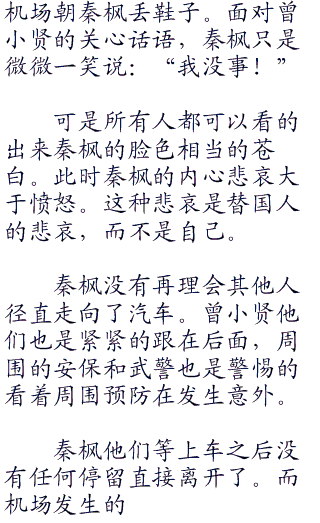 机场朝秦枫丢鞋子。面对曾
小贤的关心话语，秦枫只是
微微一笑说：“我没事！”
可是所有人都可以看的
出来秦枫的脸色相当的苍
白。此时秦枫的内心悲哀大
于愤怒。这种悲哀是替国人
的悲哀，而不是自己。
秦枫没有再理会其他人
径直走向了汽车。曾小贤他
们也是紧紧的跟在后面，周
围的安保和武警也是警惕的
看着周围预防在发生意外。
秦枫他们等上车之后没
有任何停留直接离开了。而
机场发生的